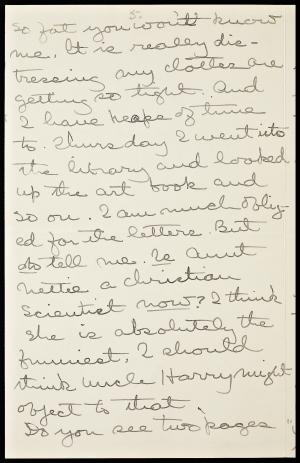 5.
so fat you won't know
me. It is really dis-
tressing my clothes are
getting so tight. And
I have heaps of time
to. Thursday I went into
the library and looked
up the art book and
so on. I am much oblig-
ed for the letters. But
do tell me. Is aunt
Nettie a Christian
Scientist now? I think
she is absolutely the
funniest, I should
think uncle Harry might
object to that.
Do you see two pages